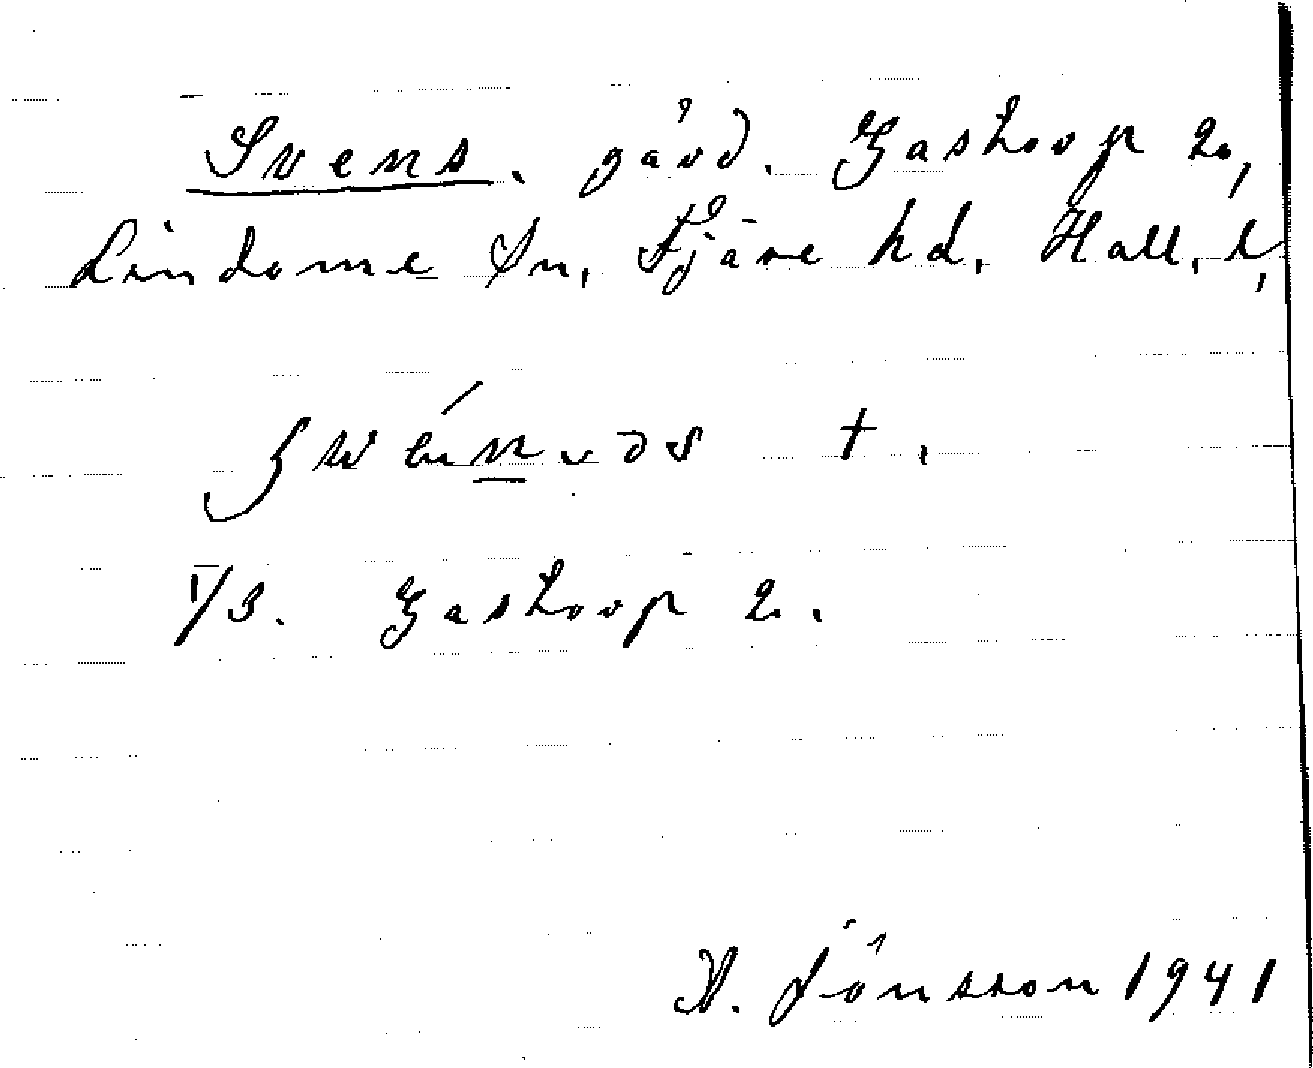 Svens, gård. Gastorp 2,
Lindome sn, Fjäre hd, Hall. l,
†.
1/3. Gastorp 2.
H. Jönsson 1941